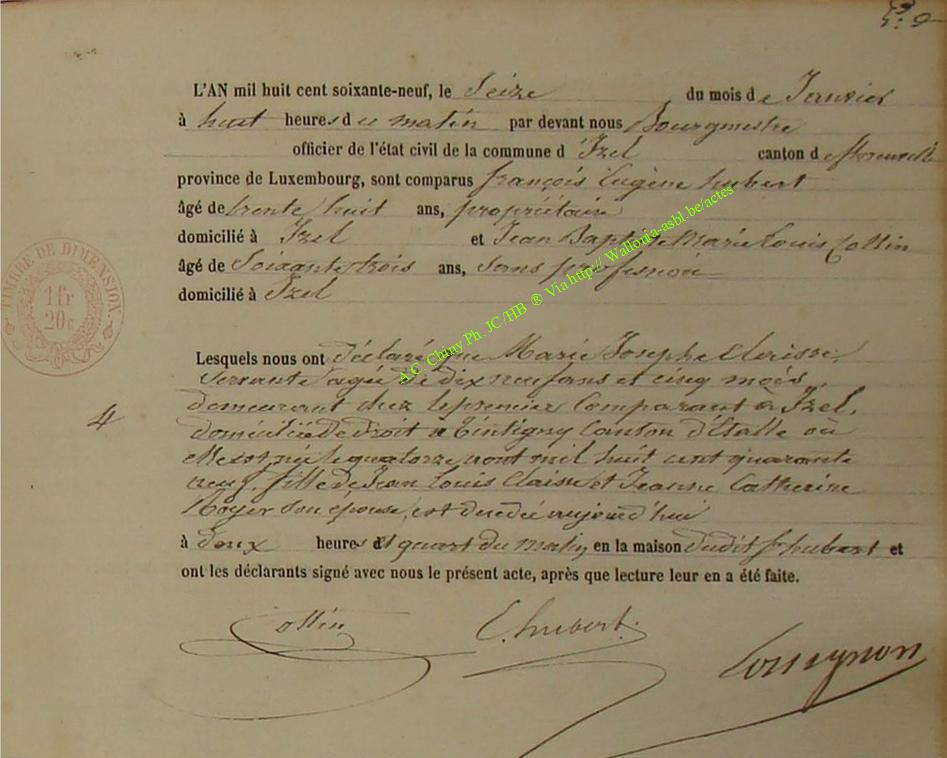 L'AN mil huit cent soixante-neuf, le Seize du mois de Janvier
à huit heures du matin par devant nous Bourgmestre
officier de l'état civil de la commune d'Izel canton de florenville
province de Luxembourg, sont comparus françois Eugène hubert
âgé de trente huit ans, propriétaire
domicilié à Izel et Jean Baptiste Marie Louis Collin
âgé de Soixante trois ans, Sans profession
domicilié à Izel
TIMBRE DE DIMENSION.
1 fr
20 c
Lesquels nous ont déclaré que Marie Josephe Claisse,
Servante agée de dix neuf ans et cinq mois,
demeurant chez le premier Comparant à Izel,
domiciliée de droit à Tintigny Canton d'Etalle où
elle est née le quatorze août mil huit cent quarante
4
neuf, fille de Jean Louis Claisse et Jeanne Catherine
Royer Son épouse, est décédée aujourd'hui
à deux heures et quart du matin en la maison dudit Sr hubert et
ont les déclarants signé avec nous le présent acte, après que lecture leur en a été faite.
Collin E. hubert.
A.C. Chiny Ph. JC/HB ® Via http// Wallonia-asbl.be/actes